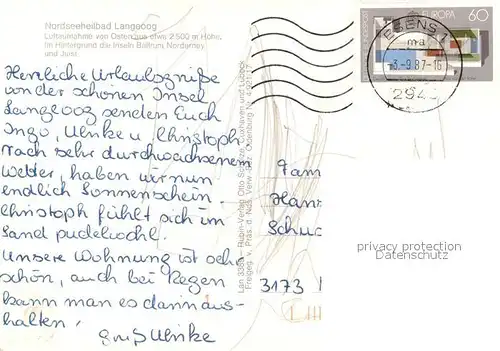 Nordseeheilbad Langeoog
Luftaufnahme von Osten aus etwa 2 500 m Höhe.
Im Hintergrund die Inseln Baltrum, Norderney
und Juist
Herzliche Urlaubsgrüße
von der schönen Insel
Langeoog senden Euch
Ingo, Ulrike u. Christoph.
Nach sehr durchwachsenem
Wetter, haben wir nun
endlich Sonnenschein.
Christoph fühlt sich im
Sand pudelwohl.
Unsere Wohnung ist sehr
schön, auch bei Regen
kann man es darin aus-
halten.
Gruß Ulrike
Rubin-Verlag Otto Cuxhaven und Lübeck
Freigeg. v. Präs. d. Nds. Verw.
EUROPA 60
ESENS 1
ma
-3.-9.87-16
294
Fam
Hann
Schu
3173
privacy protection
Datenschutz